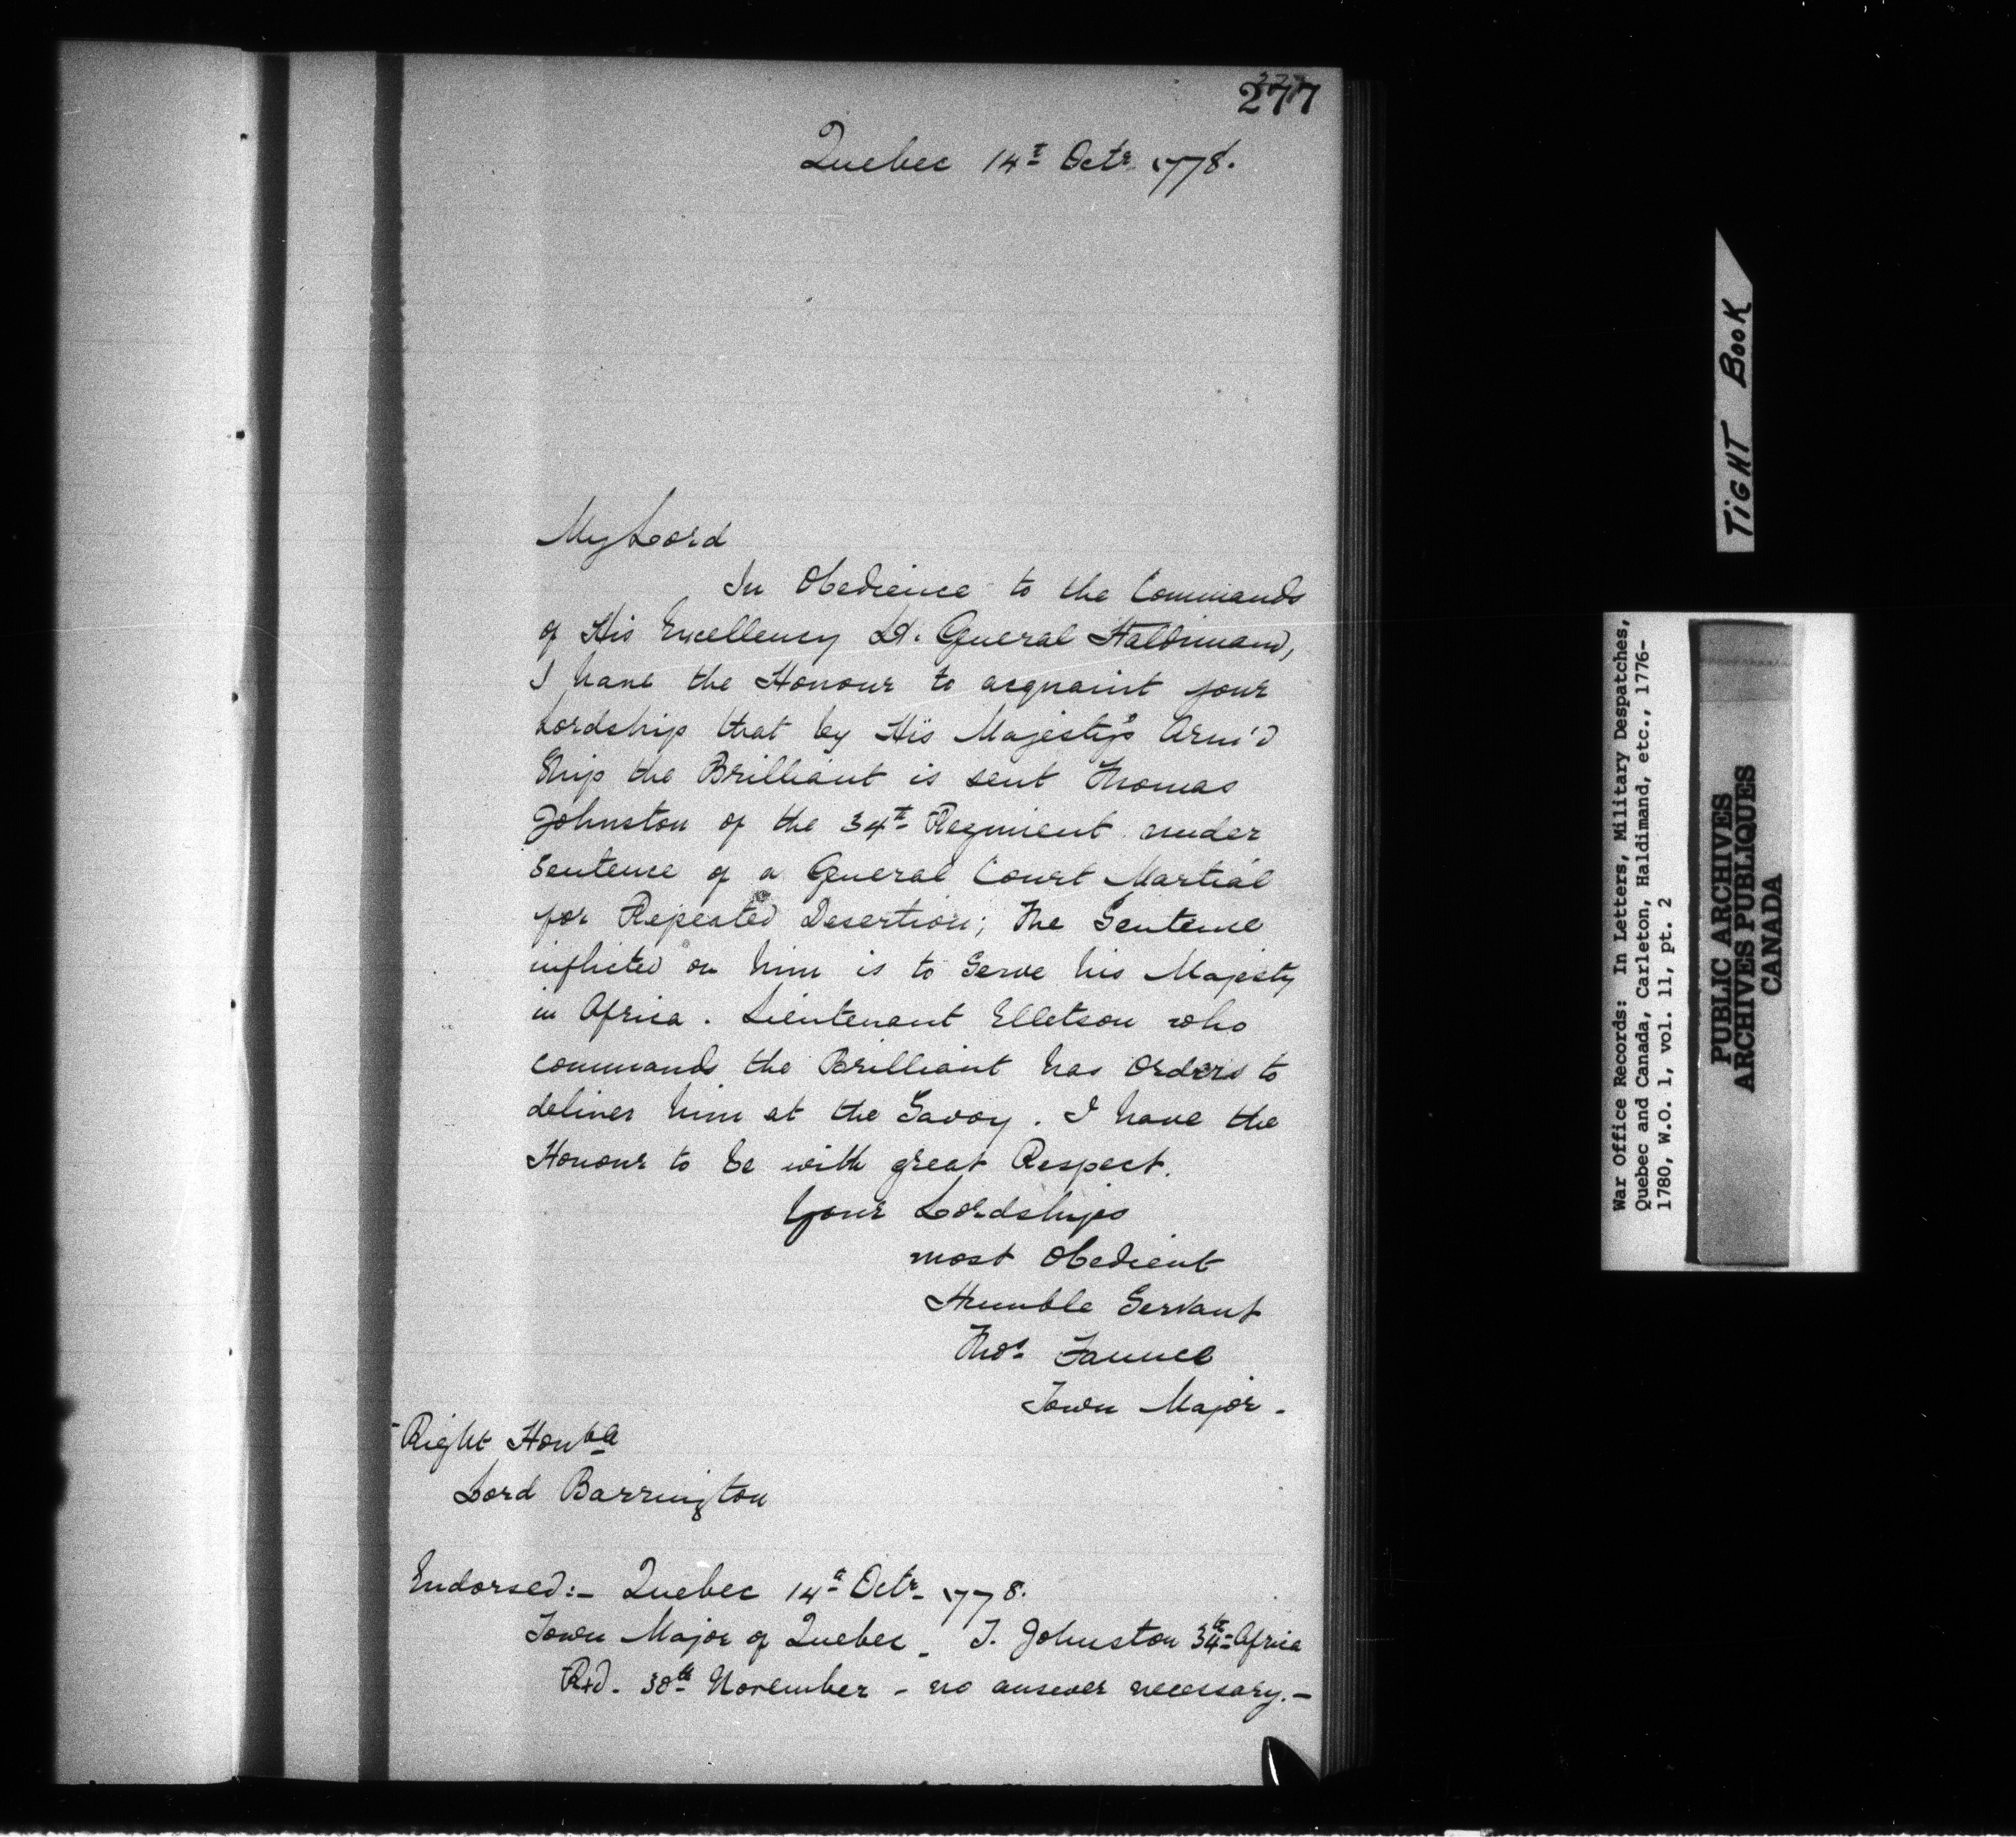 277
Quebec 14t Octr 1778.
My Lord
In Obedience to the Commands
of His Excellency Lt. General Haldimand,
I have the Honour to acquaint your
Lordship that by His Majesty's Arm'd
Ship the Brilliant is sent Thomas
Johnston of the 34t Regiment under
Sentence of a General Court Martial
for Repeated Desertion; The Sentence
inflicted on him is to Serve his Majesty
in Africa. Lieutenant Elletson who
commands the Brilliant has Orders to
deliver him at the Savoy. I have the
Honour to be with great Respect.
Your Lordships
most Obedient
Humble Servant
Thos.
Town Major.
Right Honble
Lord Barrington
Endorsed:- Quebec 14th Octr 1778.
Town Major of Quebec - T. Johnston 34th Africa
Rd. 30th November - no answer necessary.-
TIGHT BOOK
War Office Records: In Letters, Military Despatches,
Quebec and Canada, Carleton, Haldimand, etc., 1776-
1780, W.O. 1, vol. 11, pt. 2
PUBLIC ARCHIVES
ARCHIVES PUBLIQUES
CANADA